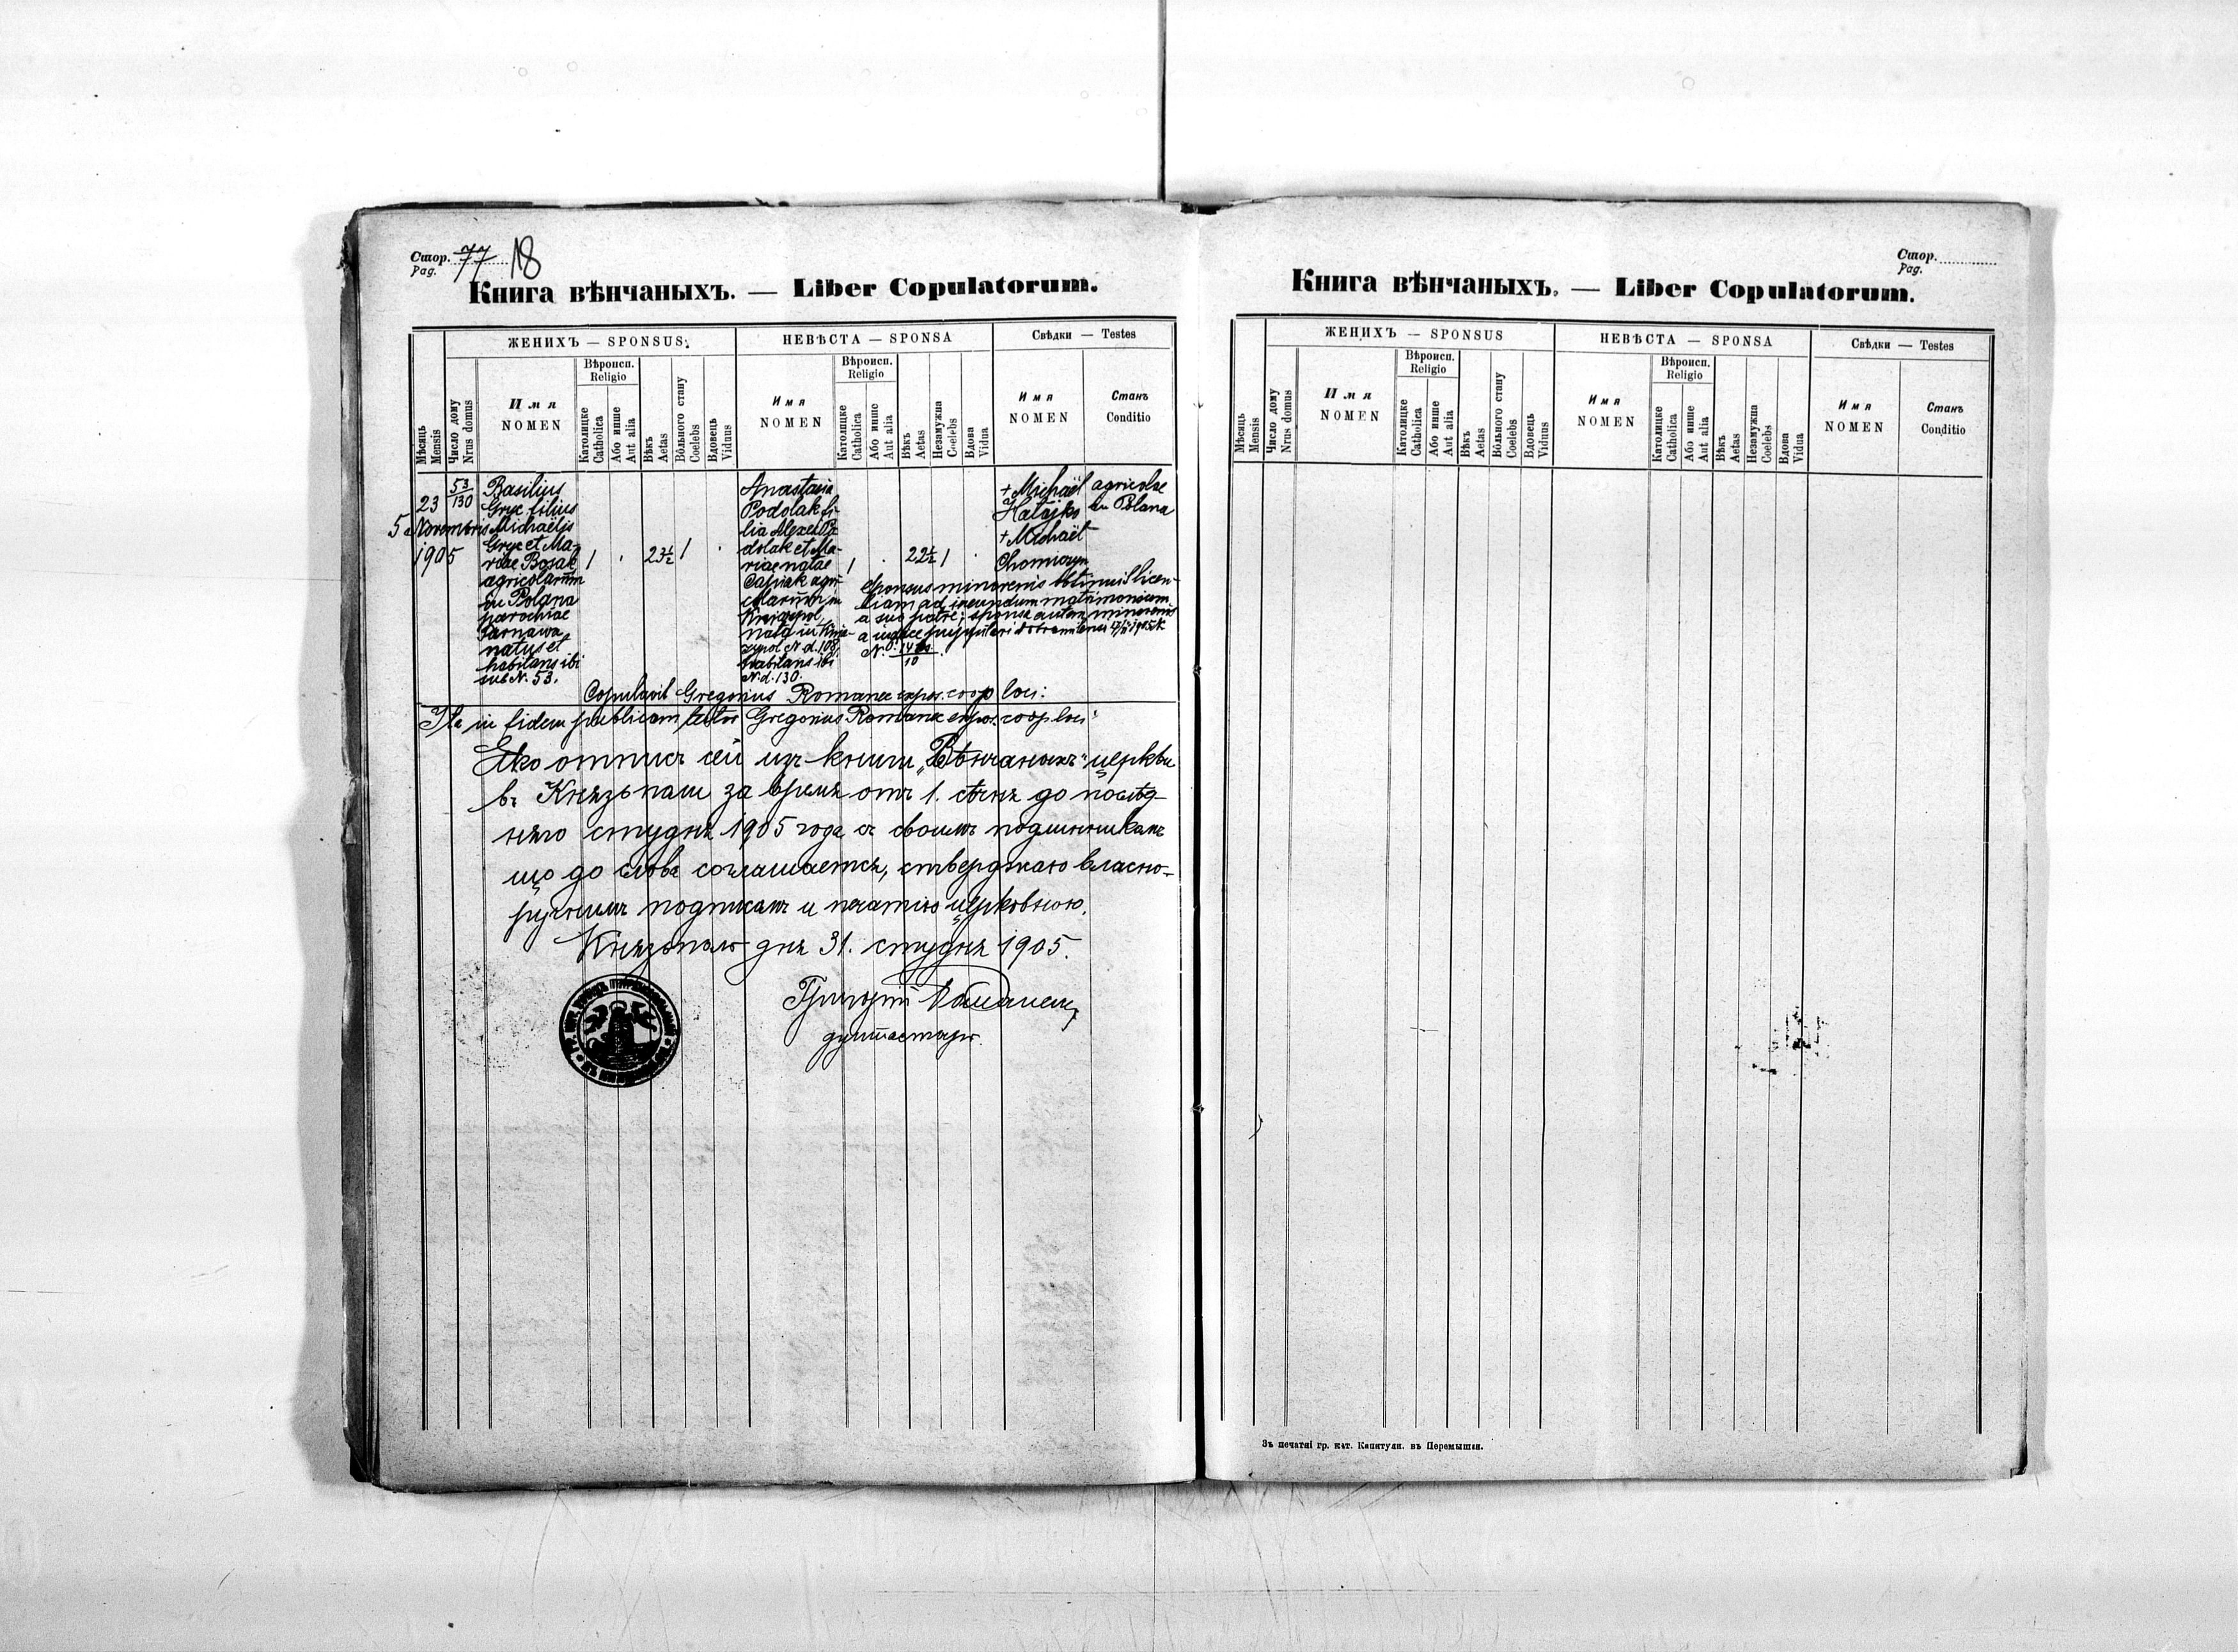 Стор. 77 18
Pag.
Книга вѣнчаныхъ. — Liber Copulatorum.
Мѣсяць
Mensis
Число дому
Nrus domus
ЖЕНИХЪ — SPONSUS
Имя
NOMEN
Вѣроисп.
Religio
Католицке
Catholica
Або инше
Aut alia
Вѣкъ
Aetas
Вольного стану
Coelebs
Вдовець
Viduus
НЕВѢСТА — SPONSA
Имя
NOMEN
Вѣроисп.
Religio
Католицке
Catholica
Або инше
Aut alia
Вѣкъ
Aetas
Незамужна
Coelebs
Вдова
Vidua
Свѣдки — Testes
Имя
NOMEN
Станъ
Conditio
5
23
Novembris
1905
53
130
Basilius
Gryc filius
Michaëlis
Gryc et Ma-
riae Bosak
agricolarum
in Polana
parochiae
Tarnawa
natus et
habitans ibi
sub N. 53.
1 . 23½ 1 .
Anastasia
Podolak fi-
lia Alexii Po-
dolak et Ma-
riae natae
agri-
colarum in
Kniażpol,
nata in Knia-
żpol N d. 108
habitans ibi
N. d. 130.
1 . 22½ 1 .
+ Michaël
Hałajko
+ Michaël
agricolae
in Polana
Sponsus minorenis obtinuit licen-
tiam ad ineundum matrimonium
a suo patre; sponsa autem minorenis
a iudice pupillari
N.
10
Copulavit Gregorius Romanec expos. coop loci:
Ita in fidem publicam testor Gregorius Romanec expos. coop loci:
Яко отписъ сей изъ книги „Вѣнчаныхъ" церкви
въ Князьполи за время отъ 1. сѣчня до послѣд-
няго студня 1905 года съ своимъ подлинникомъ
що до слова соглашается, стверджаю власно-
ручнымъ подписомъ и печатію церковною.
Князьполь дня 31. студня 1905.
Григорій Романец
душпастырь.
Стор.
Pag.
Книга вѣнчаныхъ. — Liber Copulatorum.
Мѣсяць
Mensis
Число дому
Nrus domus
ЖЕНИХЪ — SPONSUS
Имя
NOMEN
Вѣроисп.
Religio
Католицке
Catholica
Або инше
Aut alia
Вѣкъ
Aetas
Вольного стану
Coelebs
Вдовець
Viduus
НЕВѢСТА — SPONSA
Имя
NOMEN
Вѣроисп.
Religio
Католицке
Catholica
Або инше
Aut alia
Вѣкъ
Aetas
Незамужна
Coelebs
Вдова
Vidua
Свѣдки — Testes
Имя
NOMEN
Станъ
Conditio
Зъ печатнѣ гр. кат. Капитулы. въ Перемышли.